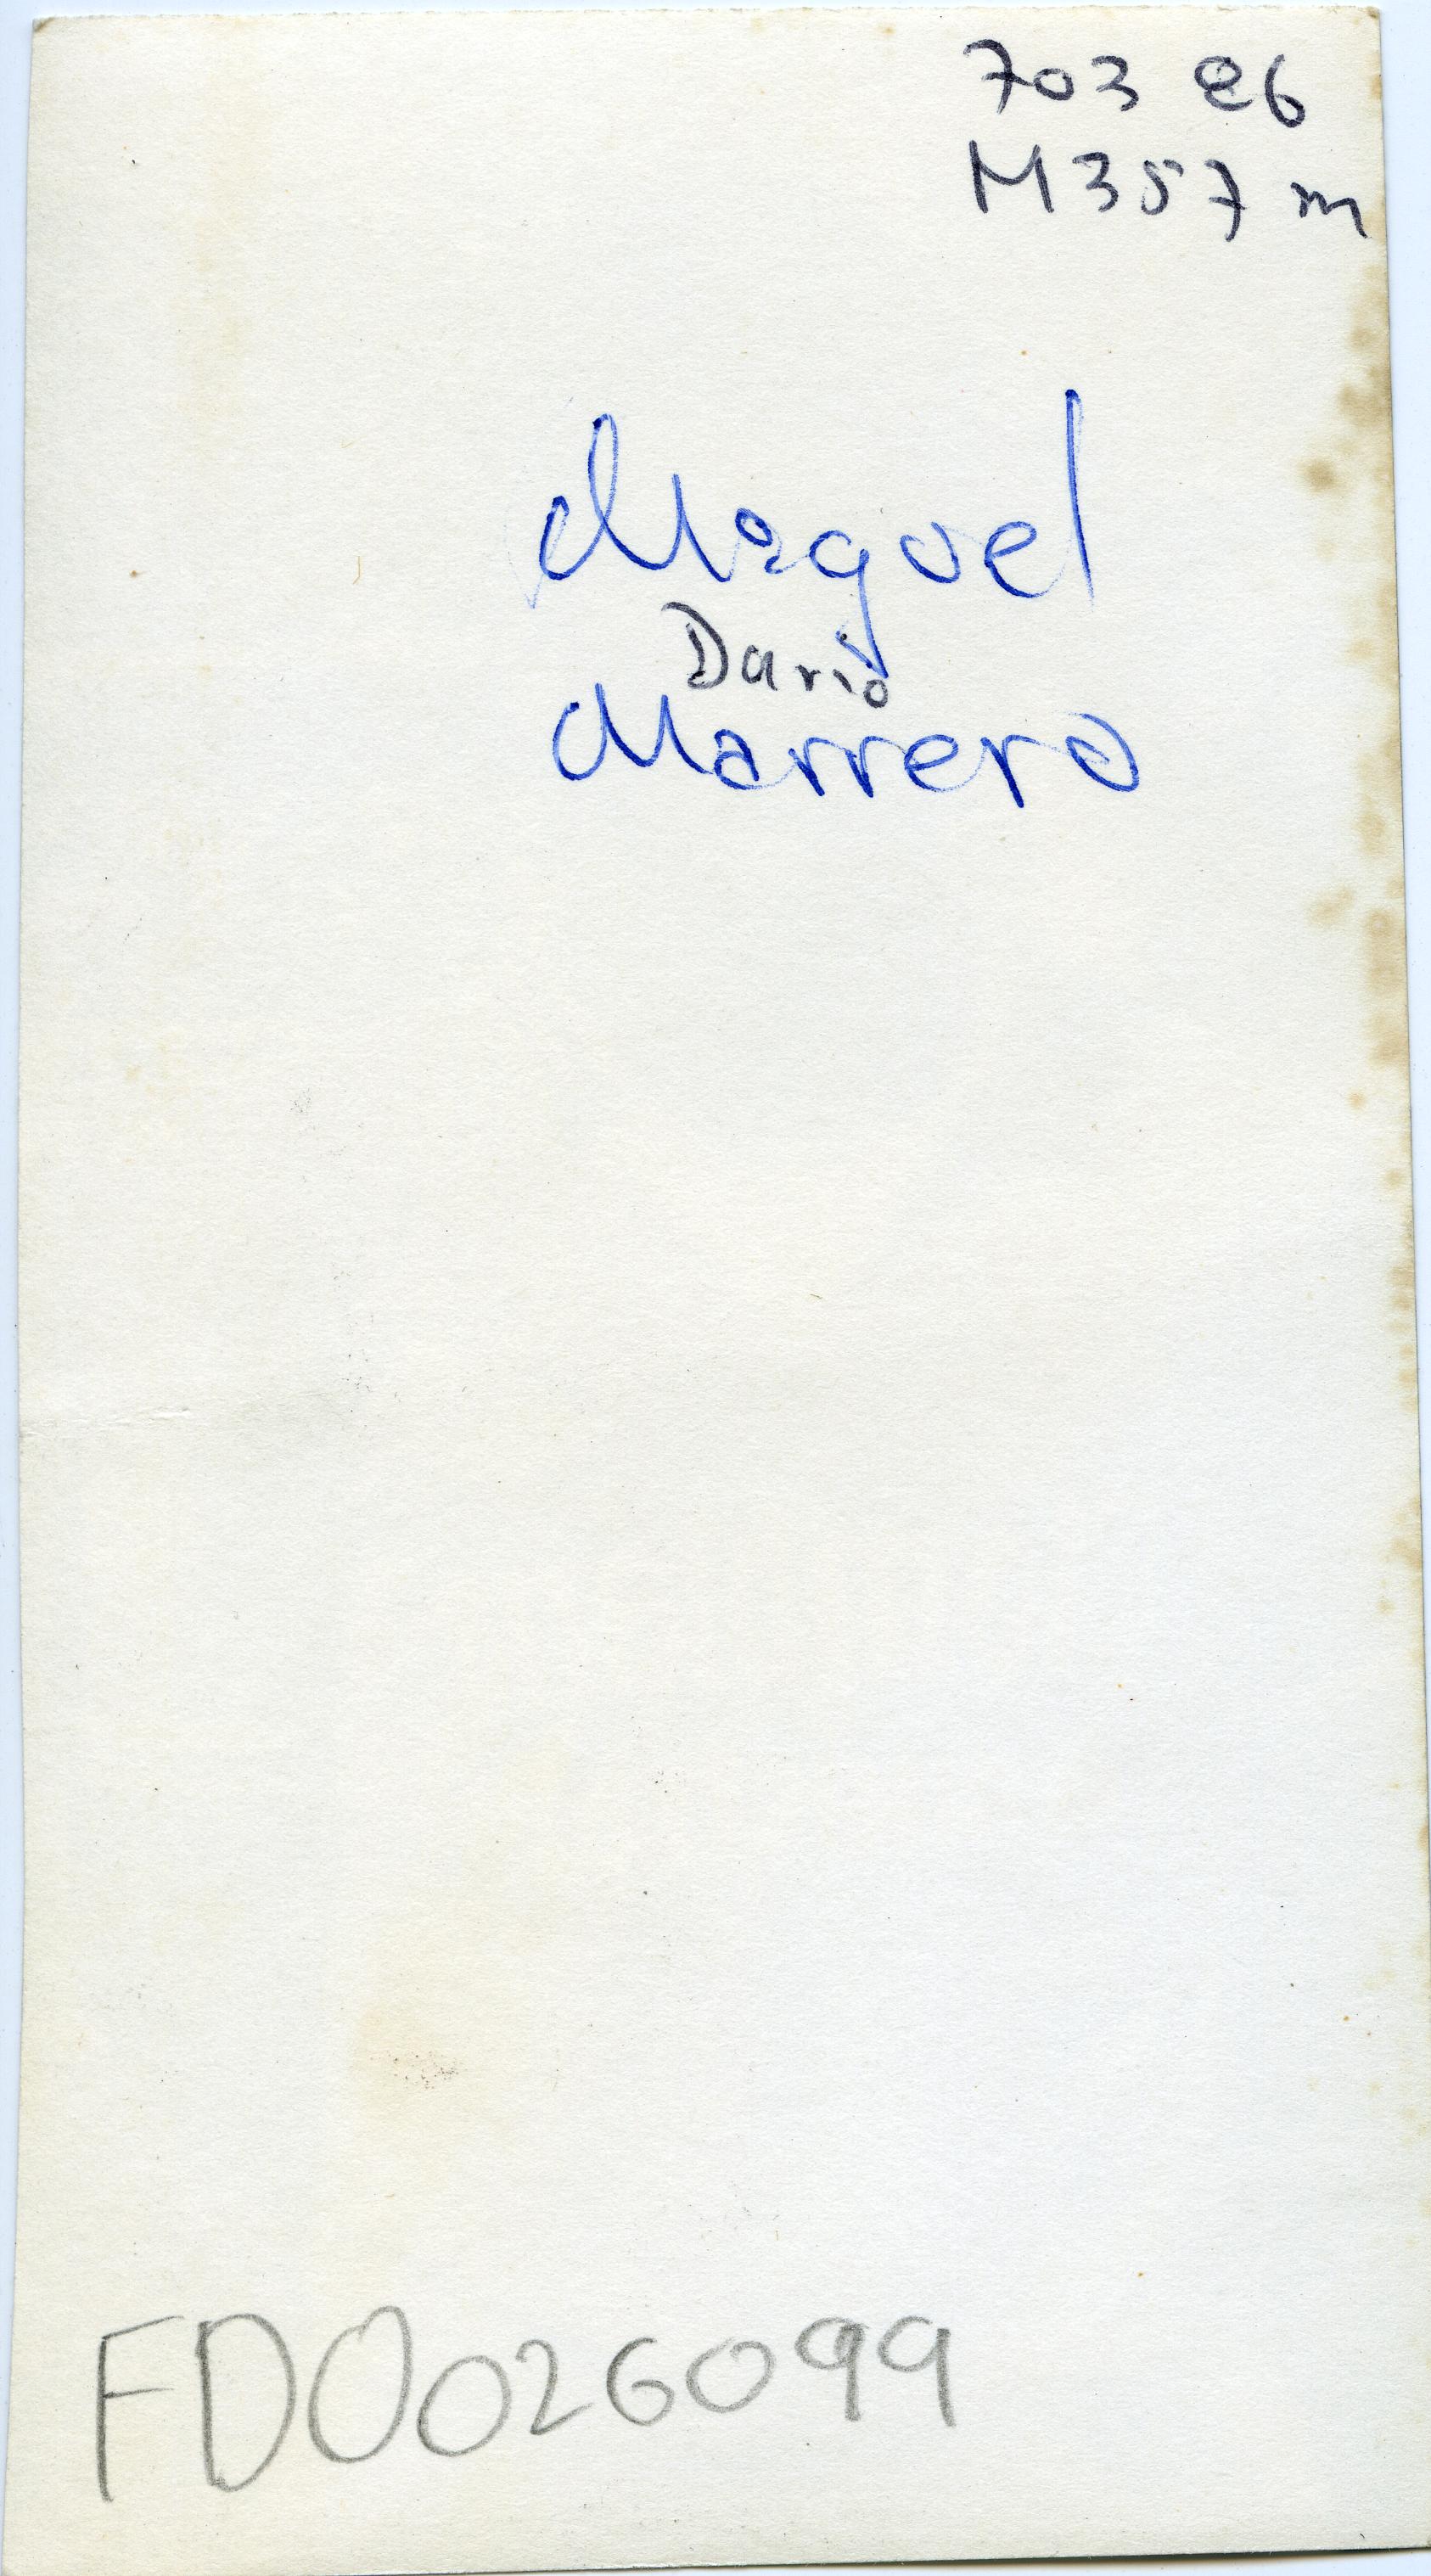 703 e6
M357 m
Miguel
Dario
Marrero
FD0026099